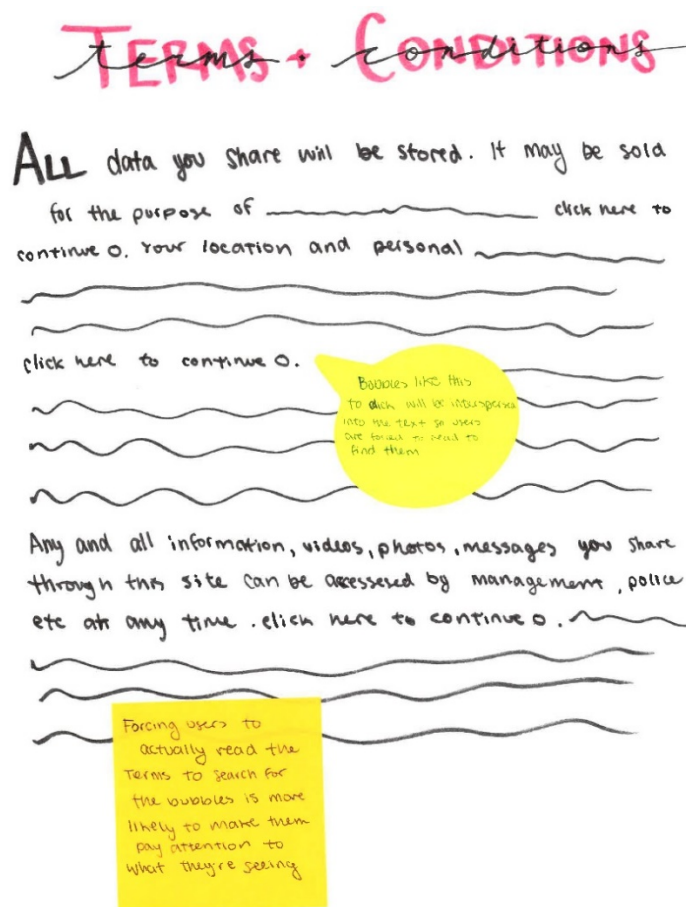 TERMS + CONDITIONS
terms conditions
ALL data you share will be stored. It may be sold
for the purpose of click here to
continue O. Your location and personal
click here to continue O.
Bubbles like this
to click will be interspersed
into the text so users
are forced to read to
find them
Any and all information, videos, photos, messages you share
through this site can be accessesed by management, police
etc at any time. click here to continue O.
Forcing users to
actually read the
Terms to search for
the bubbles is more
likely to make them
pay attention to
what they're seeing